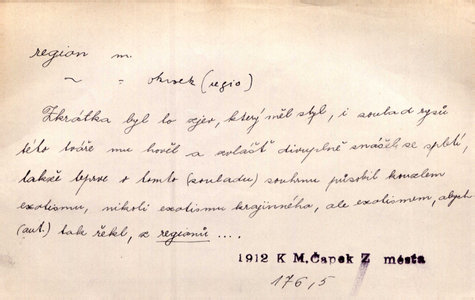 region m.
~ = okrsek (regio)
Zkrátka byl to zjev, který měl styl, i soulad rysů
této tváře mu hověl a zvlášť divuplně snášel se s pletí,
takže teprve v tomto (souladu) souhrnu působil kouzlem
exotismu, nikoli exotismu krajinného, ale exotismem, abych
(aut.) tak řekl, z regionů ....
1912 K M.Čapek Z města
176,5